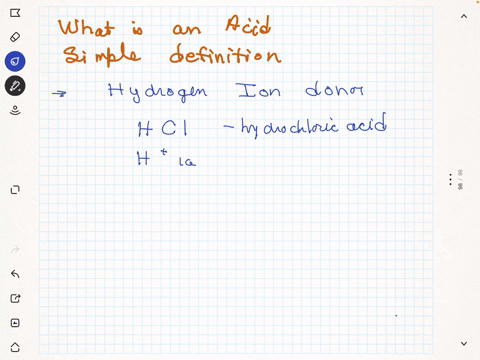 What is an Acid
Simple definition
→ Hydrogen Ion donor
HCl - hydrochloric acid
H⁺ io
98 / 98